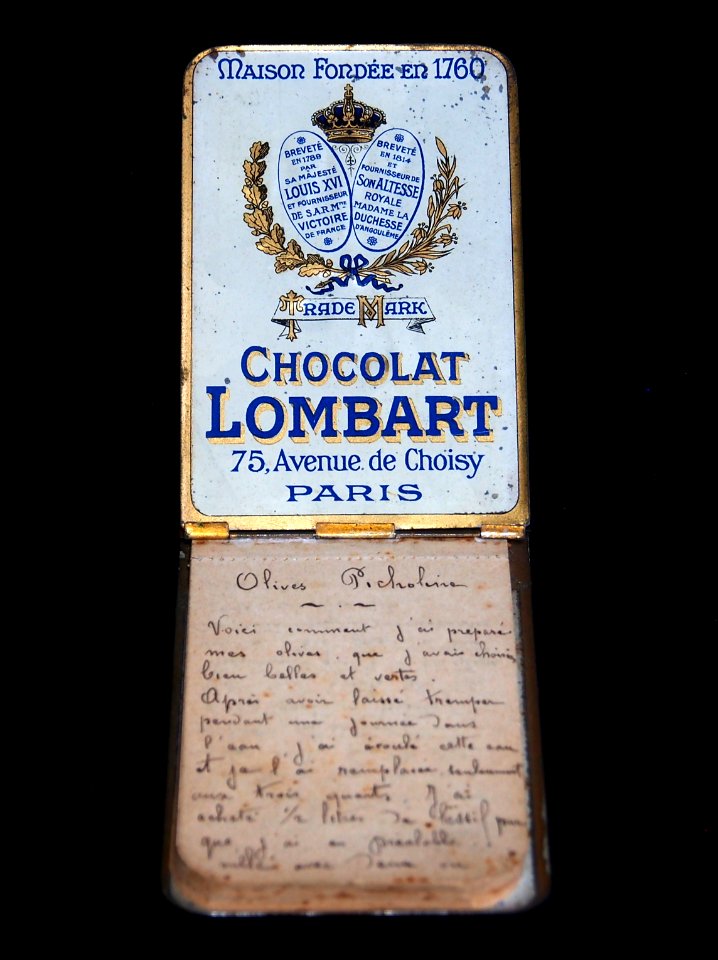 MAISON FONDÉE EN 1760
BREVETÉ
EN 1789
PAR
SA MAJESTÉ
LOUIS XVI
ET FOURNISSEUR
DE S.A.R. Mme
VICTOIRE
DE FRANCE
BREVETÉ
EN 1814
ET
FOURNISSEUR DE
SON ALTESSE
ROYALE
MADAME LA
DUCHESSE
D'ANGOULÊME
TRADE MARK
CHOCOLAT
LOMBART
75, Avenue de Choisy
PARIS
Olives Picholine
Voici comment j'ai préparé
mes olives que j'avais choisies
bien belles et vertes.
Après avoir laissé tremper
pendant une journée dans
l'eau j'ai écoulé cette eau
et je l'ai remplacée seulement
aux trois quarts. J'ai
acheté 1/2 litre de Lessif pur
que j'ai au préalable
avec